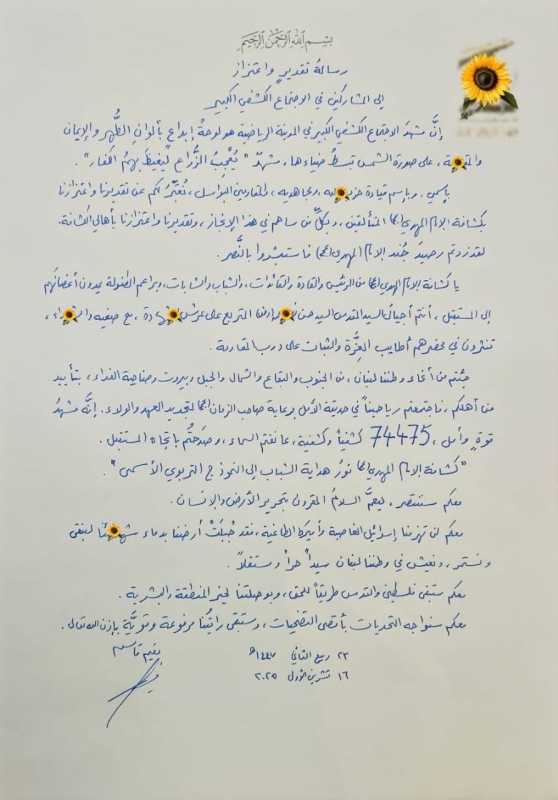 بسم الله الرحمن الرحيم
رسالة تقدير واعتزاز
إلى المشاركين في الاجتماع الكشفي الكبير
إنَّ مشهدَ الاجتماع الكشفي الكبير في المدينة الرياضية هو لوحةُ إبداع بألوانِ الطُّهر والإيمان
، على صورة الشمس تبسطُ ضياءها، مشهدٌ "يُعْجِبُ الزُّراع ليغيظَ بهمُ الكفار".
بإسمي، وبإسم قيادة ومجاهديه، والمقاومين البواسل، نُعَبِّرُ لكم عن تقديرنا واعتزازنا
بكشافة الإمام المهدي المتألقين، وبكلِّ من ساهم في هذا الإنجاز، وتقديرنا واعتزازنا بأهالي الكشافة.
لقد زدتم رصيدَ جُند الإمام المهدي فاستبشروا بالنَّصر.
يا كشافة الإمام المهدي من الرئيس والقادة والقائدات، والشباب والشابات، وبراعم الطفولة يمدون أعناقهم
إلى المستقبل، أنتم أجيال السيد المقدس السيد حسن التربع على عرش ، مع صفيه ،
تنثرون في محضرهم أطايب العِزَّة والثبات على درب المقاومة.
جئتم من أنحاء وطننا لبنان، من الجنوب والبقاع والشمال والجبل وبيروت وضاحية الفداء، بتأييد
من أهلكم، فاجتمعتم رياحيناً في حديقة الأمل برعاية صاحب الزمان لتجديد العهد والولاء. إنَّه مشهدُ
قوةٍ وأمل، 74475 كشفياً وكشفية، عانقتم السماء، وصَدَحتُم باتجاه المستقبل.
"كشافة الإمام المهدي نورُ هداية الشباب إلى النموذج التربوي الأسمى".
معكم سننتصر، ليعمَّ السلامُ المقرون بتحرير الأرض والإنسان.
معكم لن تهزمنا إسرائيل الغاصبة وأميركا الطاغية، فقد جُبِلَتْ أرضنا بدماء لنبقى
ونستمر، ونعيش في وطننا لبنان سيداً حراً ومستقلاً.
معكم ستبقى فلسطين والقدس طريقاً للحق، وبوصلتنا لخير المنطقة والبشرية.
معكم سنواجه التحديات بأقصى التضحيات، وستبقى رايتُنا مرفوعة وقويَّة بإذن الله تعالى.
نعيم قاسم
٢٣ ربيع الثاني ١٤٤٧هـ
١٦ تشرين الأول ٢٠٢٥